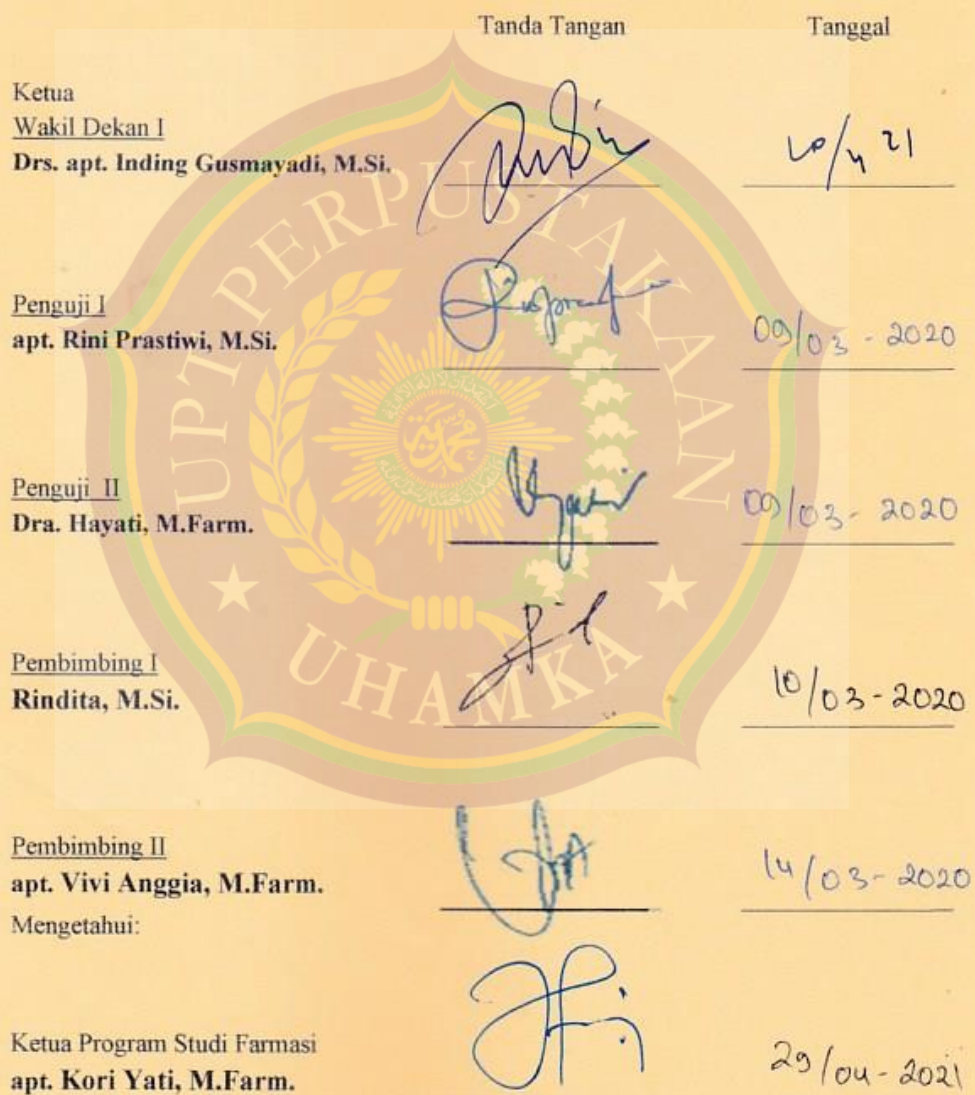 Tanda Tangan Tanggal
Ketua
Wakil Dekan I
Drs. apt. Inding Gusmayadi, M.Si.
21
Penguji I
apt. Rini Prastiwi, M.Si. 09/03 - 2020
Penguji II
Dra. Hayati, M.Farm. 09/03 - 2020
Pembimbing I
Rindita, M.Si. 10/03 - 2020
Pembimbing II
apt. Vivi Anggia, M.Farm. 14/03 - 2020
Mengetahui:
Ketua Program Studi Farmasi
apt. Kori Yati, M.Farm. 29/04 - 2021
UPT PERPUSTAKAAN
UHAMKA